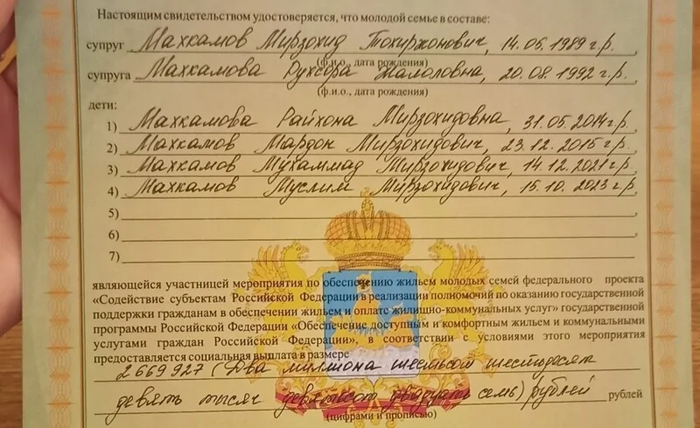 Настоящим свидетельством удостоверяется, что молодой семье в составе:
супруг Махкамов Мирзохид Тохиржонович, 14.05.1989 г.р.,
(ф.и.о., дата рождения)
супруга Махкамова Рухсора Жалоловна, 20.08.1992 г.р.,
(ф.и.о., дата рождения)
дети:
1) Махкамова Райхона Мирзохидовна, 31.05.2014г.р.,
2) Махкамов Мардон Мирзохидович, 23.12.2015г.р.,
3) Махкамов Мухаммад Мирзохидович, 14.12.2021г.р.,
4) Махкамов Муслим Мирзохидович, 15.10.2023 г.р.,
5)
6)
7)
являющейся участницей мероприятия по обеспечению жильем молодых семей федерального проекта
«Содействие субъектам Российской Федерации в реализации полномочий по оказанию государственной
поддержки гражданам в обеспечении жильем и оплате жилищно-коммунальных услуг» государственной
программы Российской Федерации «Обеспечение доступным и комфортным жильем и коммунальными
услугами граждан Российской Федерации», в соответствии с условиями этого мероприятия
предоставляется социальная выплата в размере
2 669 927 (Два миллиона шестьсот шестьдесят
девять тысяч девятьсот двадцать семь) рублей рублей
(цифрами и прописью)